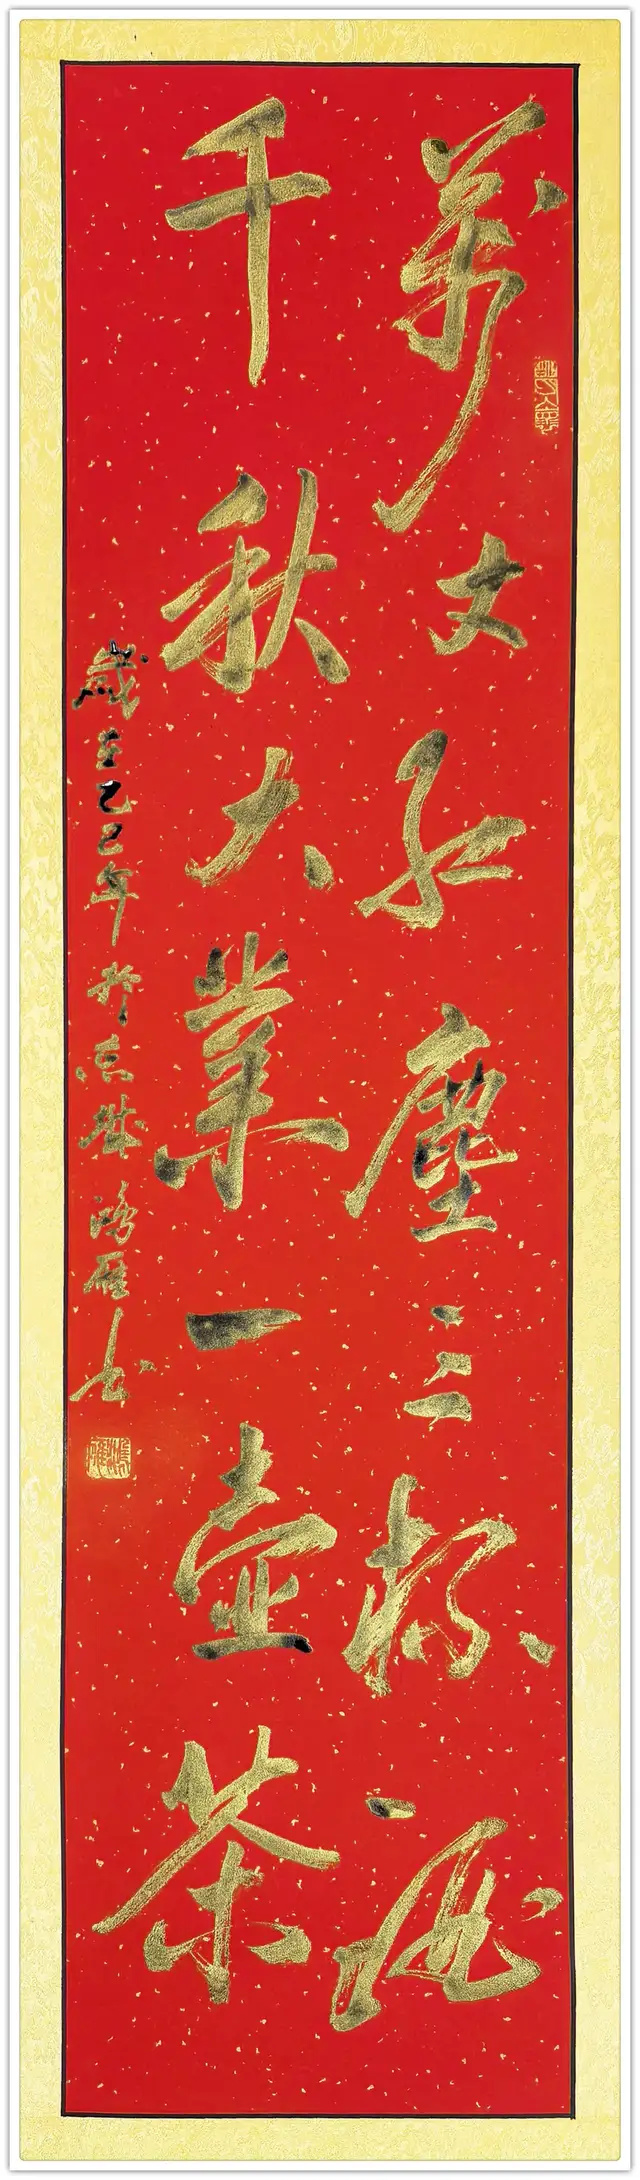 萬丈红塵三杯酒
千秋大業一壺茶
歲至乙巳年於京城鴻雁书
鴻雁